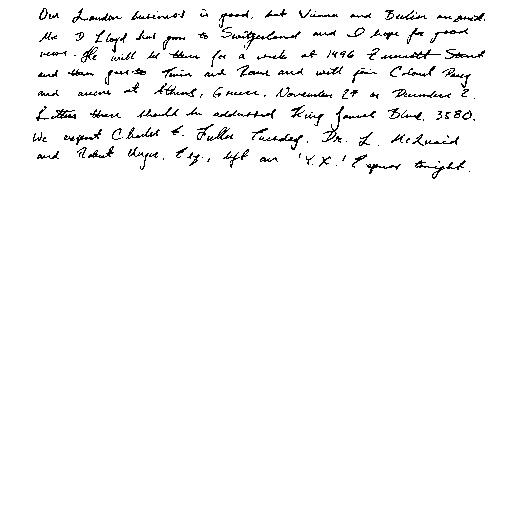 Our London business is good, but Vienna and Berlin are quiet.
Mr. D Lloyd has gone to Switzerland and I hope for good
news. He will be there for a week at 1496 Zermott Street
and then goes to Turin and Rome and will join Colonel Parry
and arrive at Athens, Greece, November 27 or December 2.
Letters there should be addressed King James Blvd. 3580.
We expect Charles E. Fuller Tuesday. Dr. L. McQuaid
and Robert Unger, Esq., left on 'Y.X.' Express tonight.